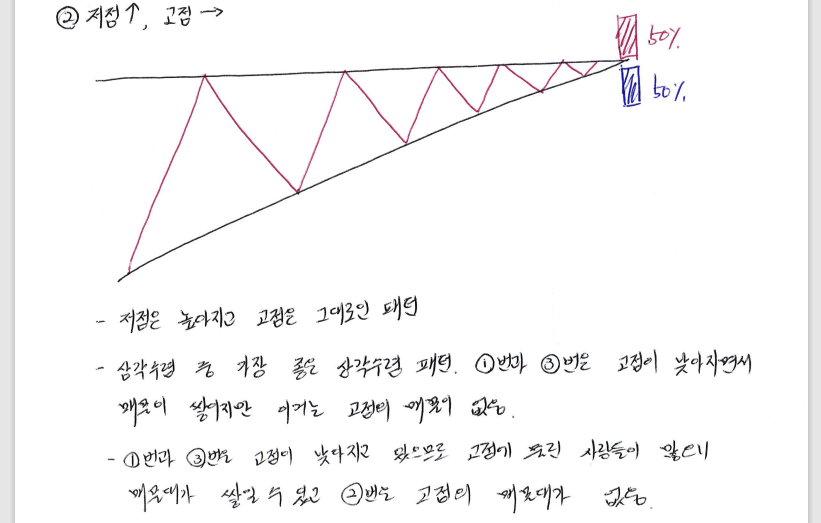 ② 저점↑, 고점→
50%
50%
- 저점은 높아지고 고점은 그대로인 패턴
- 삼각수렴 중 가장 좋은 삼각수렴 패턴. ①번과 ③번은 고점이 낮아지면서
매물이 쌓이지만 이거는 고점의 매물이 없음.
- ①번과 ③번은 고점이 낮아지고 있으므로 고점에 물린 사람들이 많으니
매물대가 쌓일 수 있고 ②번은 고점의 매물대가 없음.